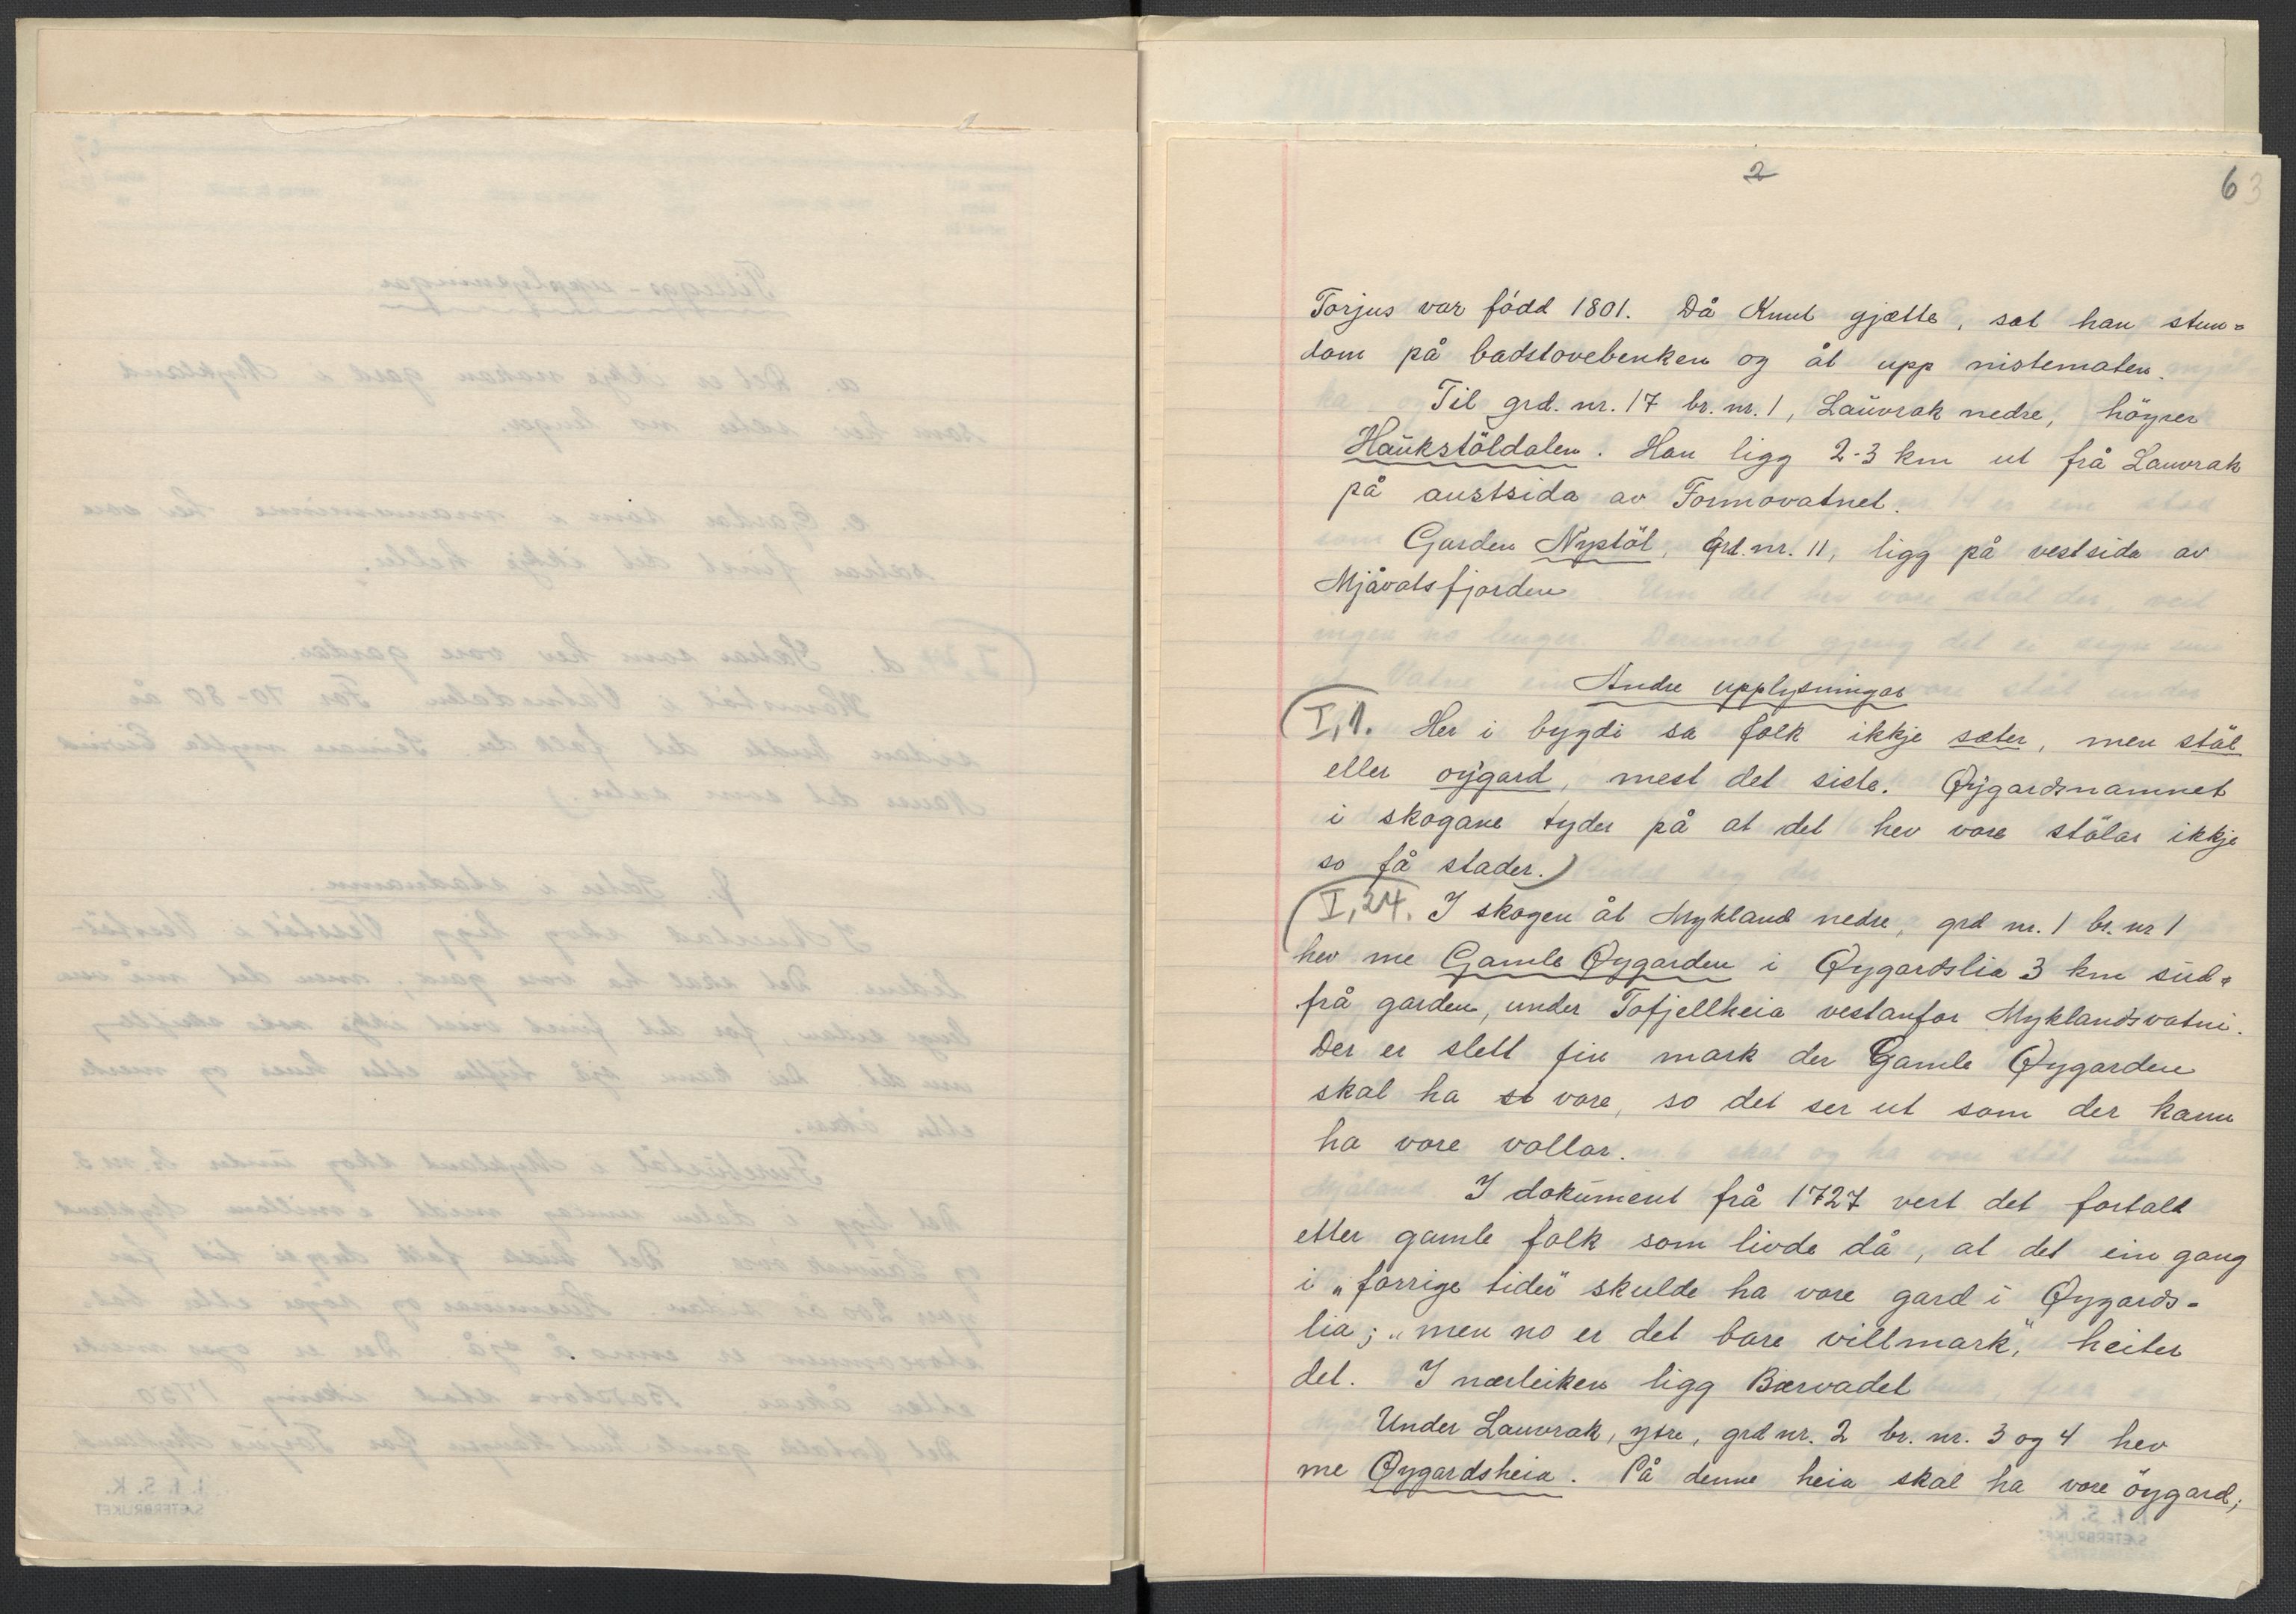 2
63
Torjus var född 1801. Då Knut gjætte, sat han stun=
dom på badstovebenken og åt upp nistematen.
Til grd. nr. 17 br. nr. 1, Lauvrak nedre, höyrer
Haukstöldalen. Han ligg 2-3 km ut frå Lauvrak
på austsida av Formovatnet.
Garden Nystöl, Grd. nr. 11, ligg på vestsida av
Mjåvatsfjorden
Andre upplysningar
I,1. Her i bygdi sa folk ikkje sæter, men stöl
eller øygard, mest det siste. Øygardsnamnet
i skogane tyder på at det hev vore stölar ikkje
so få stader.)
(I,24. I skogen åt Mykland nedre, grd nr. 1 br. nr 1
hev me Gamle Øygarden i Øygardslia 3 km sud=
frå garden, under Tofjellheia vestanfor Myklandsvatni.
Der er slett fin mark der Gamle Øygarden
skal ha st vore, so det ser ut som der kann
ha vore vollar.
I dokument frå 1727 vert det fortalt
etter gamle folk som livde då, at det ein gang
i "forrige tider" skulde ha vore gard i Øygards-
lia; "men no er det bare villmark", heiter
det. I nærleiken ligg Bærvadet
Under Lauvrak, ytre, grd nr. 2 br. nr. 3 og 4 hev
me Øygardsheia. På denne heia skal ha vore öygard;